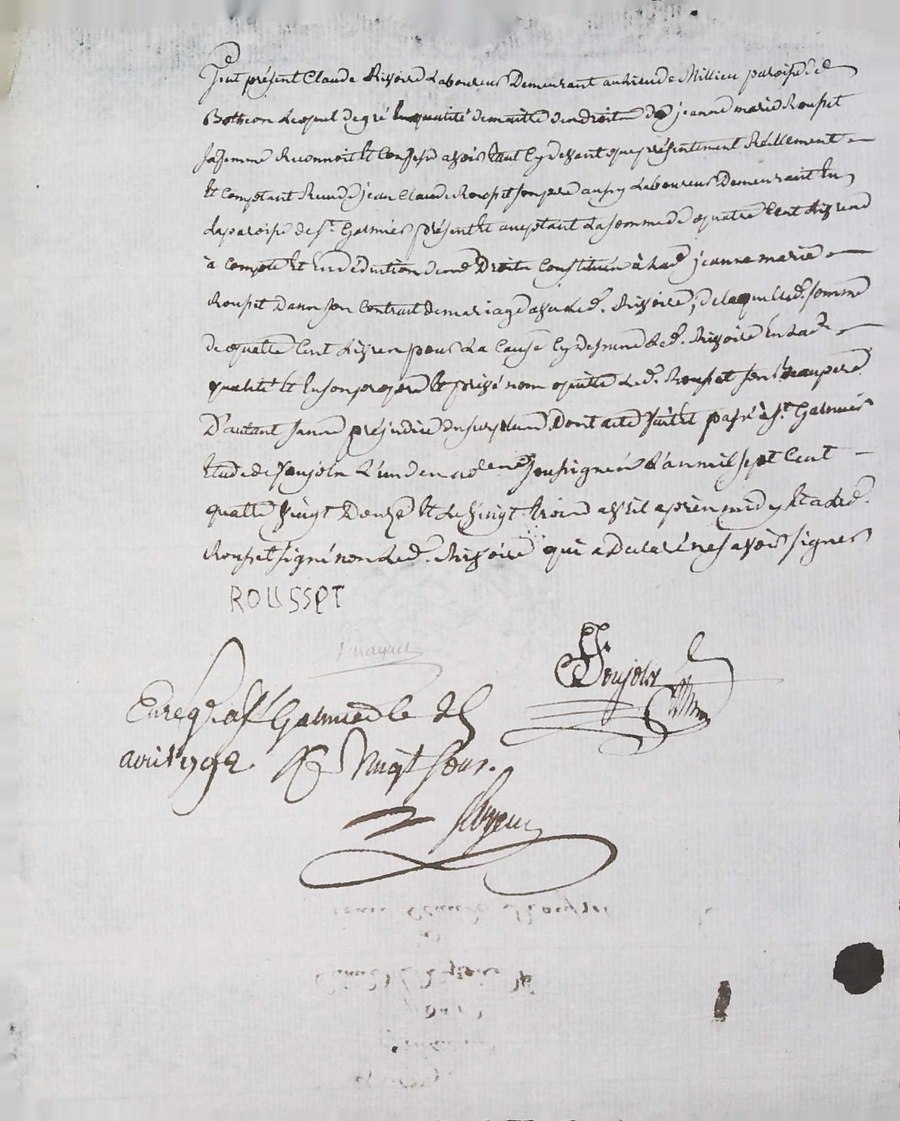 Fut présent Claude Rivoire Laboureur Demeurant au lieu de Millieu paroisse de
Botheon Lequel de gré En qualité de maitre des droits de jeanne marie Rouset
sa femme Reconnoit Et Confesse avoir Eu Cy devant que présentement Réellement
Et Comptant Reçu de jean Claude Rouset son père aussy Laboureur Demeurant En
La paroisse de St. Galmier présent Et acceptant La somme de quatre Cent Livres
à Compte Et En déduction de ses Droits Constitués à Lad. jeanne marie
Rouset Dans son Contrat de mariage avec Led. Rivoire, de laquelle d. somme
de quatre Cent Livres pour La Cause Cy dessus Led. Rivoire En Lad.
qualité Et En son propre Et privé nom quitte Led. Rouset son Beaupere
D'autant sans préjudice du surplus Dont acte fait Et passé à St. Galmier
Etude de Soujols L'un des no. soussignés L'an mil sept Cent
quatre Vingt Douze Et Le Vingt trois avril après midy Et a Led.
Rouset signé non Led. Rivoire qui a Déclaré ne savoir signer
ROUSSET
Soujols
Enreg. à St Galmier le 26
avril 1792 R Vingt sous.